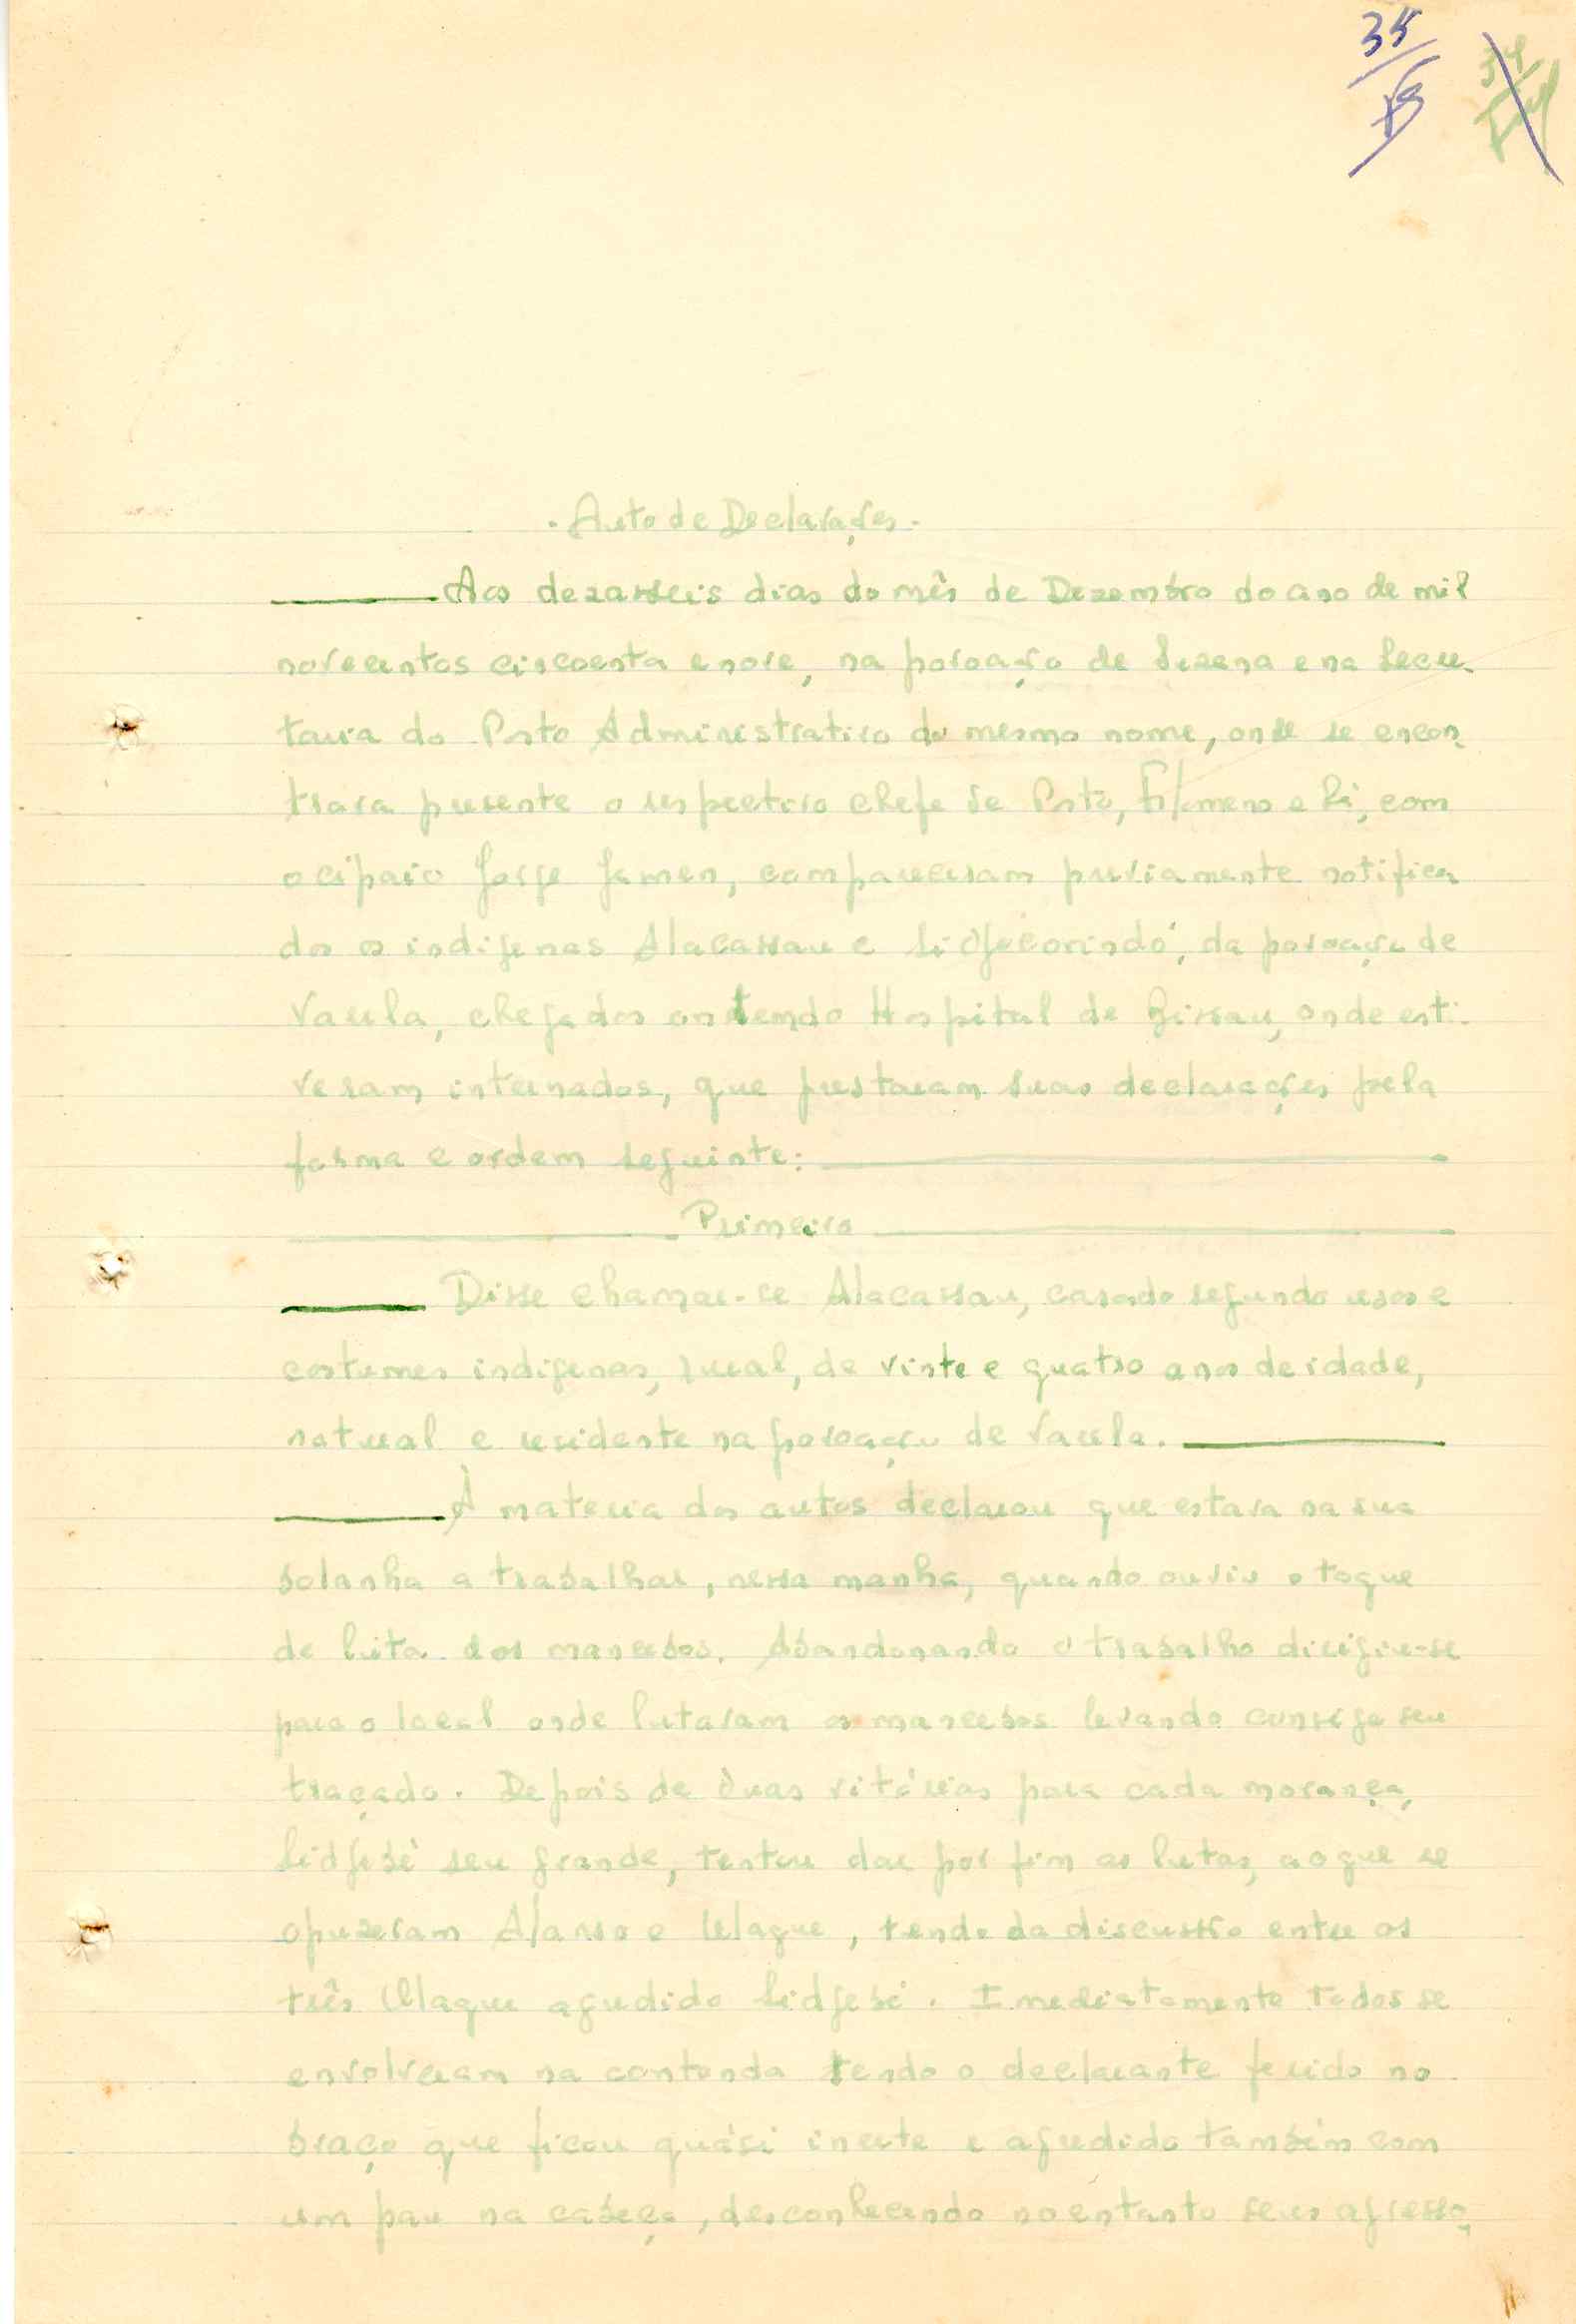 35
34
- Auto de Declarações -
Aos dezasseis dias do mês de Dezembro do ano de mil
novecentos cincoenta e nove, na povoação de Suzana e na Secre-
taria do Posto Administrativo do mesmo nome, onde se encon-
trava presente o respectivo chefe de Posto, com
o cipaio Jorge comparecersam previamente notifica
dos os indígenas Alacassau e da povoação de
Varela, chegados ontem do Hospital de Bissau, onde esti-
veram internados, que prestaram suas declarações pela
forma e ordem seguinte:
Primeiro
Disse chamar-se Alacassau, casado segundo usos e
costumes indígenas, de vinte e quatro anos de idade,
natural e residente na povoação de Varela.
À materia dos autos declarou que estava na sua
bolanha a trabalhar, nessa manhã, quando ouviu o toque
de luta dos mancebos. Abandonando o trabalho dirigiu-se
para o local onde lutavam os mancebos levando consigo seu
traçado. Depois de duas vitórias para cada morança,
Sidjebé seu grande, tentou dar por fim as lutas, ao que se
opuzeram Alanso e Ulaque, tendo da discussão entre os
três Ulaque agredido Sidjebé. Imediatamente todos se
envolveram na contenda tendo o declarante ferido no
braço que ficou quási inerte e agredido também com
um pau na cabeça, desconhecendo no entanto seus agresso-